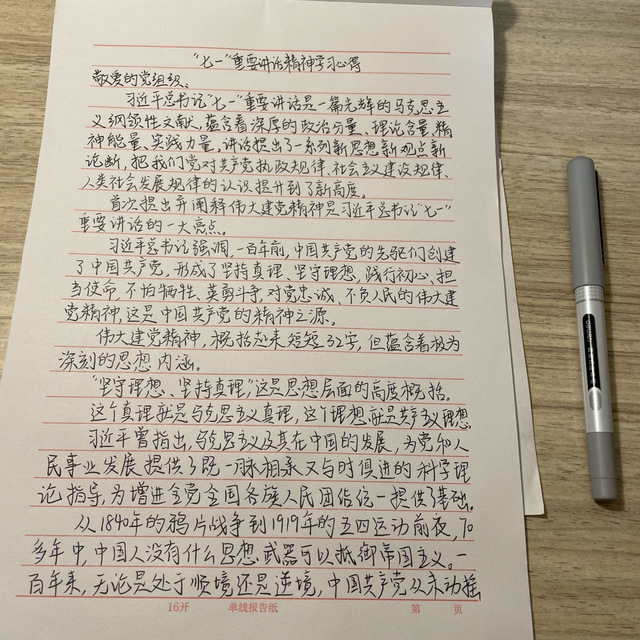 “七一”重要讲话精神学习心得
敬爱的党组织：
习近平总书记“七一”重要讲话是一篇光辉的马克思主
义纲领性文献，蕴含着深厚的政治分量、理论含量、精
神能量、实践力量，讲话提出了一系列新思想新观点新
论断，把我们党对共产党执政规律、社会主义建设规律、
人类社会发展规律的认识提升到了新高度。
首次提出并阐释伟大建党精神是习近平总书记“七一”
重要讲话的一大亮点。
习近平总书记强调，一百年前，中国共产党的先驱们创建
了中国共产党，形成了坚持真理、坚守理想，践行初心、担
当使命，不怕牺牲、英勇斗争，对党忠诚、不负人民的伟大建
党精神，这是中国共产党的精神之源。
伟大建党精神，概括起来短短32字，但蕴含着极为
深刻的思想内涵。
“坚守理想、坚持真理，”这是思想层面的高度概括。
这个真理就是马克思主义真理，这个理想就是共产主义理想。
习近平曾指出，马克思主义及其在中国的发展，为党和人
民事业发展提供了既一脉相承又与时俱进的科学理
论指导，为增进全党全国各族人民团结统一提供了基础。
从1840年的鸦片战争到1919年的五四运动前夜，70
多年中，中国人没有什么思想武器可以抵御帝国主义。一
百年来，无论是处于顺境还是逆境，中国共产党从未动摇
16开 单线报告纸 第 页